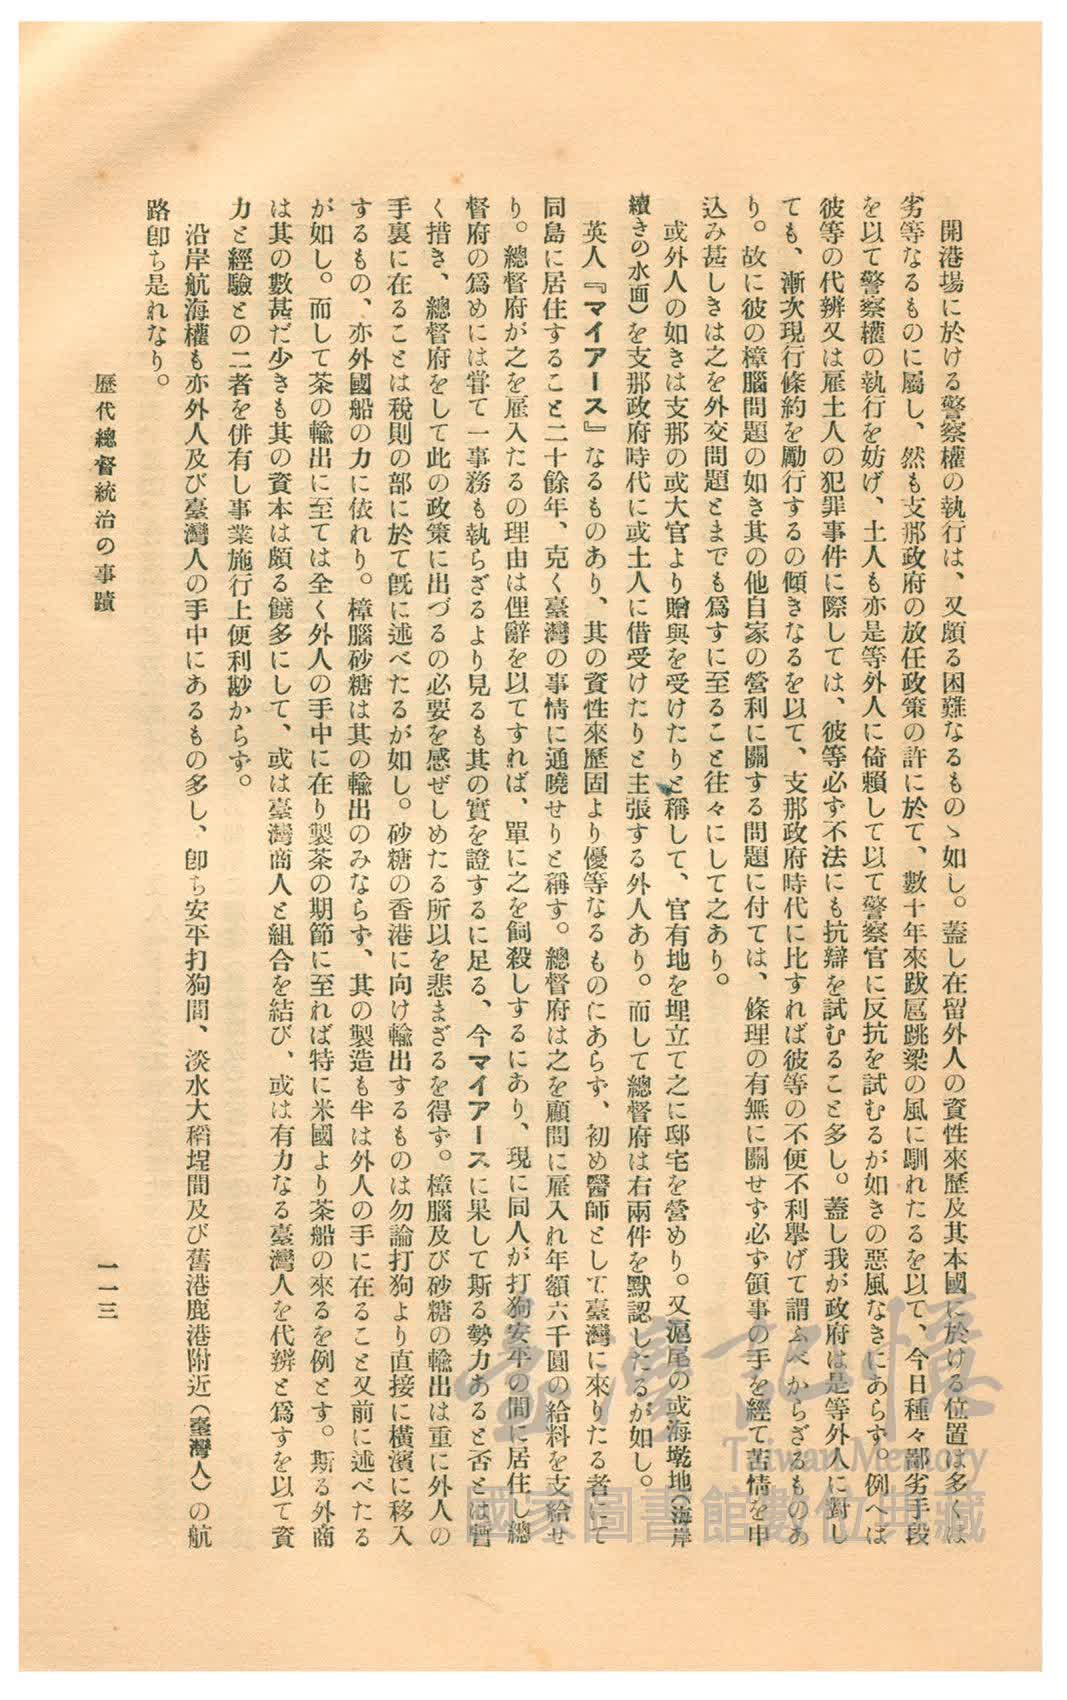 開港場に於ける警察權の執行は、又頗る困難なるものゝ如し。蓋し在留外人の資性來歷及其本國に於ける位置は多くは
劣等なるものに屬し、然も支那政府の放任政策の許に於て、數十年來跋扈跳梁の風に馴れたるを以て、今日種々鄙劣手段
を以て警察權の執行を妨げ、土人も亦是等外人に倚賴して以て警察官に反抗を試むるが如きの惡風なきにあらす。例へは
彼等の代辨又は雇土人の犯罪事件に際しては、彼等必ず不法にも抗辯を試むること多し。蓋し我が政府は是等外人に對し
ても、漸次現行條約を勵行するの傾きなるを以て、支那政府時代に比すれば彼等の不便不利擧げて謂ふべからざるものあ
り。故に彼の樟腦問題の如き其の他自家の營利に關する問題に付ては、條理の有無に關せず必ず領事の手を經て苦情を申
込み甚しきは之を外交問題とまでも爲すに至ること往々にして之あり。
或外人の如きは支那の或大官より贈與を受けたりと稱して、官有地を埋立て之に邸宅を營めり。又滬尾の或海墘地(海岸
續きの水面)を支那政府時代に或土人に借受けたりと主張する外人あり。而して總督府は右兩件を默認したるが如し。
英人『マイアース』なるものあり、其の資性來歷固より優等なるものにあらず、初め醫師として臺灣に來りたる者にて
同島に居住すること二十餘年、克く臺灣の事情に通曉せりと稱す。總督府は之を顧問に雇入れ年額六千圓の給料を支給せ
り。總督府が之を雇入たるの理由は俚辭を以てすれば、單に之を飼殺しするにあり、現に同人が打狗安平の間に居住し總
督府の爲めには嘗て一事務も執らざるより見るも其の實を證するに足る、今マイアースに果して斯る勢力あると否とは暫
く措き、總督府をして此の政策に出づるの必要を感ぜしめたる所以を悲まざるを得ず。樟腦及び砂糖の輸出は重に外人の
手裏に在ることは稅則の部に於て旣に述べたるが如し。砂糖の香港に向け輸出するものは勿論打狗より直接に橫濱に移入
するもの、亦外國船の力に依れり。樟腦砂糖は其の輸出のみならず、其の製造も半は外人の手に在ること又前に述べたる
が如し。而して茶の輸出に至ては全く外人の手中に在り製茶の期節に至れば特に米國より茶船の來るを例とす。斯る外商
は其の數甚だ少きも其の資本は頗る饒多にして、或は臺灣商人と組合を結び、或は有力なる臺灣人を代辨と爲すを以て資
力と經驗との二者を併有し事業施行上便利尠からず。
沿岸航海權も亦外人及び臺灣人の手中にあるもの多し、卽ち安平打狗間、淡水大稻埕間及び舊港鹿港附近(臺灣人)の航
路卽ち是れなり。
歷代總督統治の事蹟
一一三
臺灣記憶
Taiwan Memory
國家圖書館數位典藏